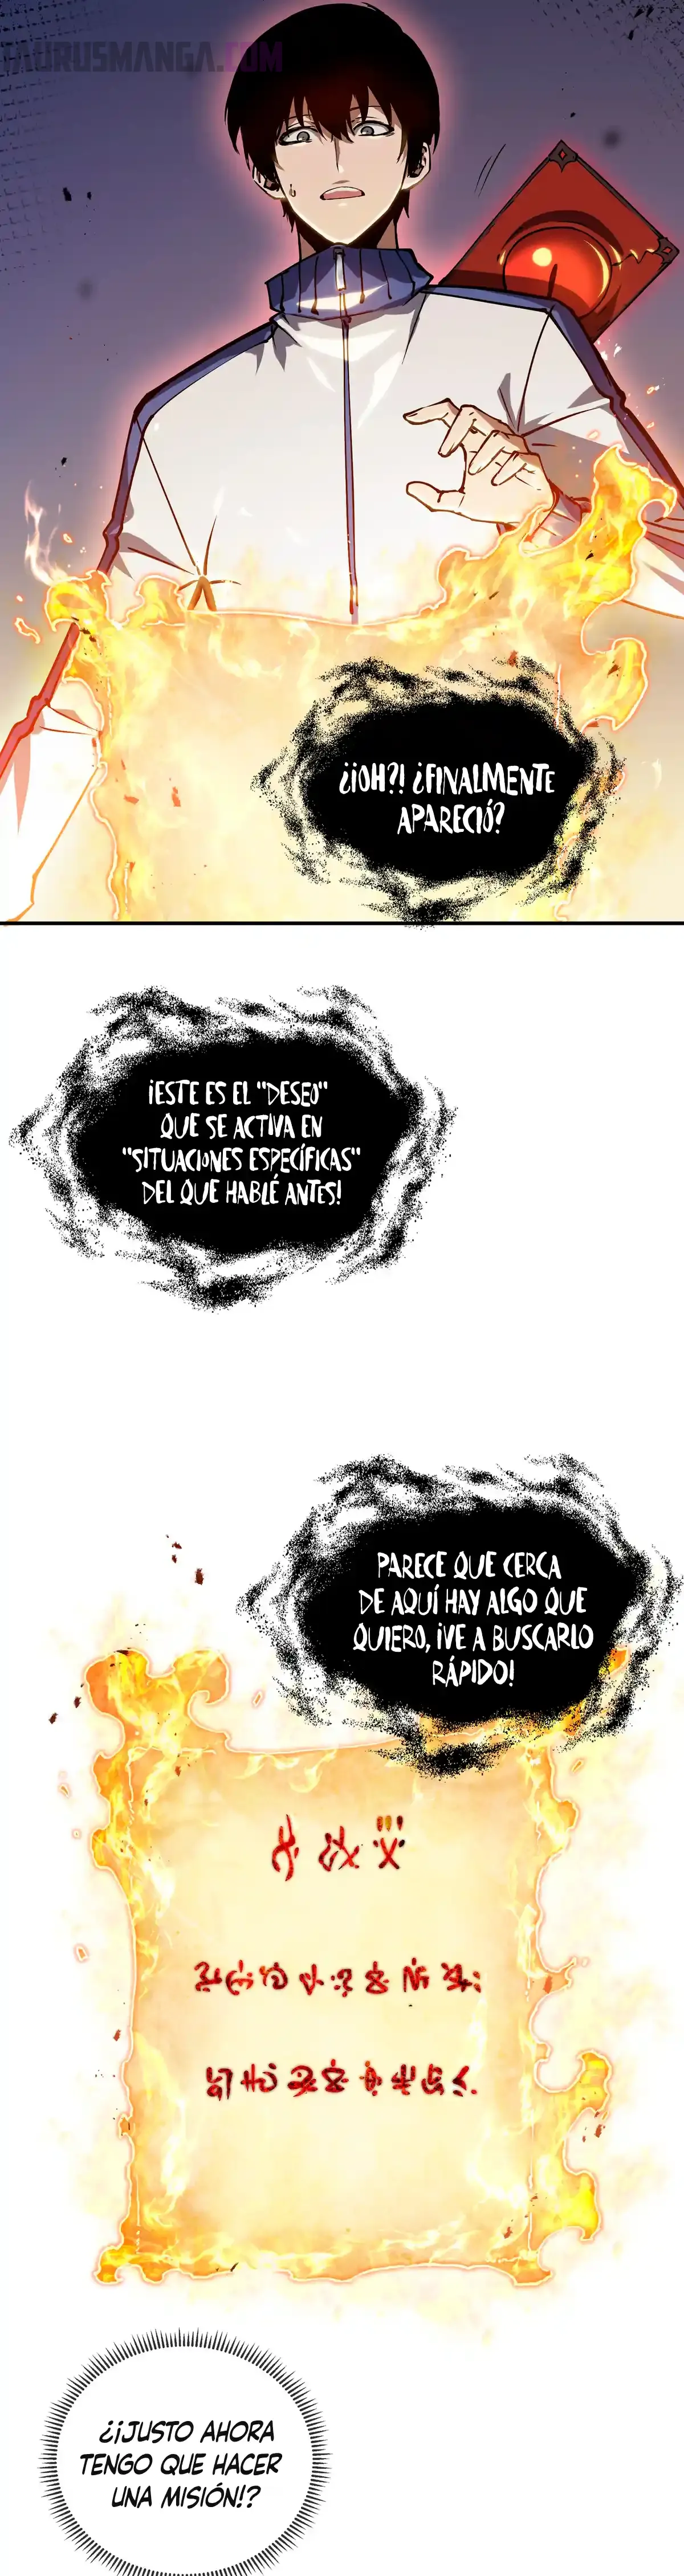 TAURUSMANGA.COM
¿¡OH?! ¿FINALMENTE
APARECIÓ?
¡ESTE ES EL "DESEO"
QUE SE ACTIVA EN
"SITUACIONES ESPECÍFICAS"
DEL QUE HABLÉ ANTES!
PARECE QUE CERCA
DE AQUÍ HAY ALGO QUE
QUIERO, ¡VE A BUSCARLO
RÁPIDO!
¿¡JUSTO AHORA
TENGO QUE HACER
UNA MISIÓN!?